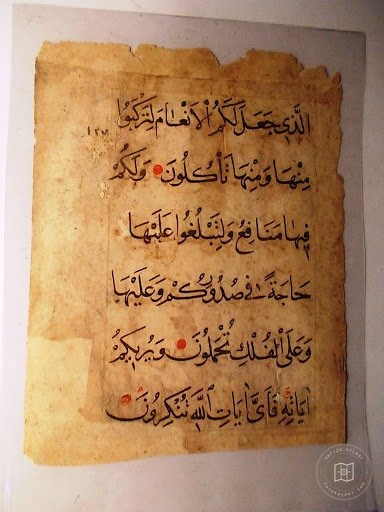 الَّذِي جَعَلَ لَكُمُ الْأَنْعَامَ لِتَرْكَبُوا
مِنْهَا وَمِنْهَا تَأْكُلُونَ وَلَكُمْ
فِيهَا مَنَافِعُ وَلِتَبْلُغُوا عَلَيْهَا
حَاجَةً فِي صُدُورِكُمْ وَعَلَيْهَا
وَعَلَى الْفُلْكِ تُحْمَلُونَ وَيُرِيكُمْ
آيَاتِهِ فَأَيَّ آيَاتِ اللَّهِ تُنْكِرُونَ